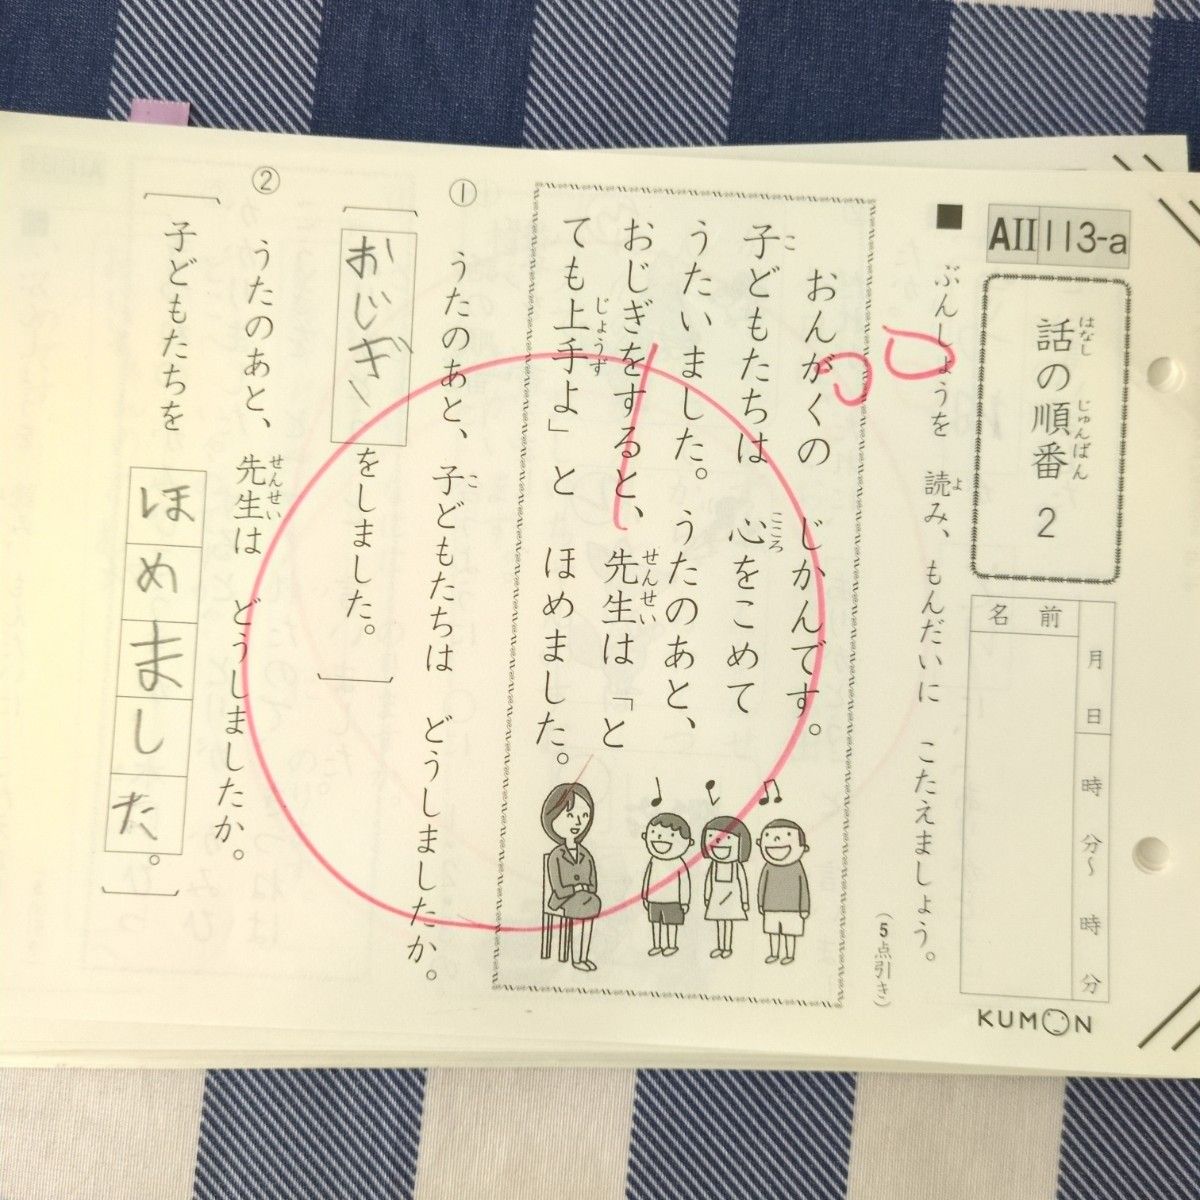 AII 113-a
話の順番 2
はなし じゅんばん
名前
月 日
時 分〜 時 分
KUMON
■ ぶんしょうを 読み、もんだいに こたえましょう。
よ
(5点引き)
おんがくの じかんです。
子どもたちは 心をこめて
こ こころ
うたいました。うたのあと、
おじぎをすると、先生は「と
せんせい
ても上手よ」と ほめました。
じょうず
① うたのあと、子どもたちは どうしましたか。
こ
おじぎ をしました。
② うたのあと、先生は どうしましたか。
せんせい
子どもたちを ほめました。
100